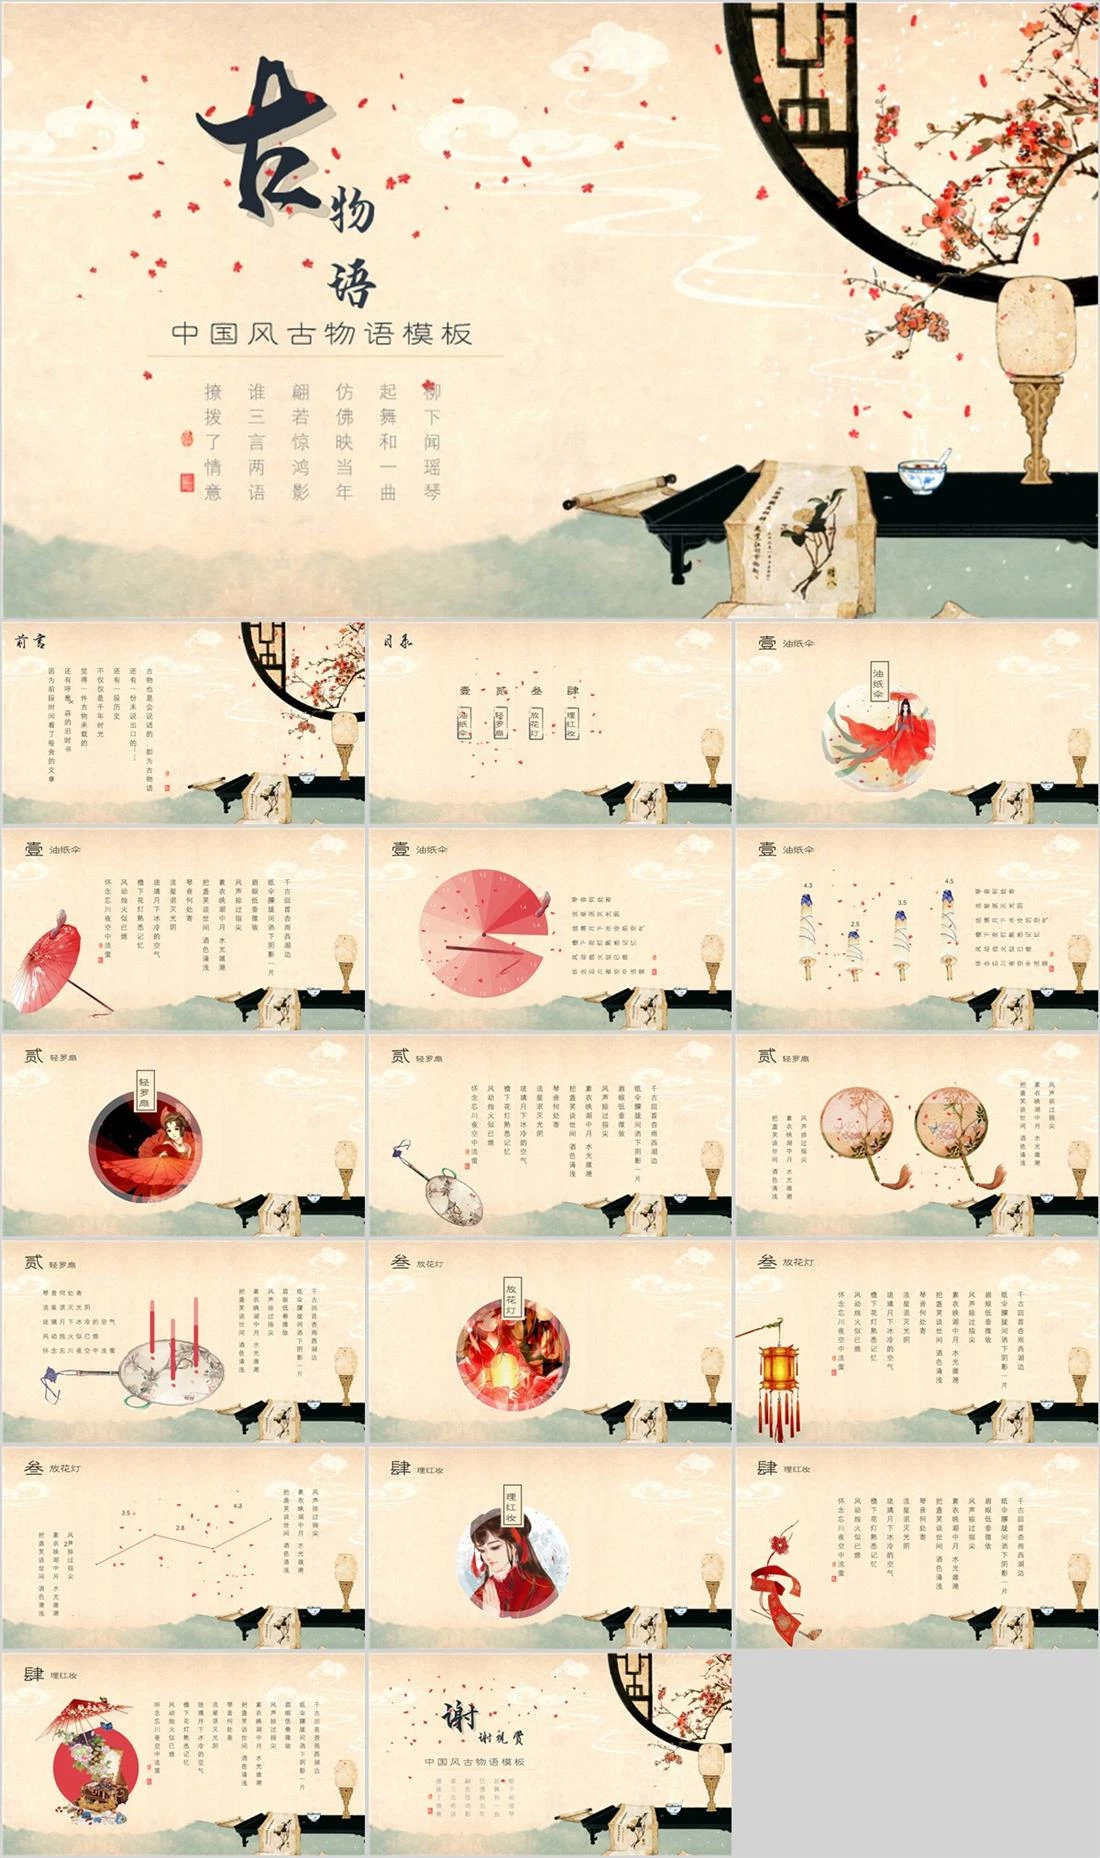 古物语
中国风古物语模板
柳下闻瑶琴
起舞和一曲
仿佛映当年
翩若惊鸿影
谁三言两语
撩拨了情意
前言
古物也是会说话的 即为古物语
还有一份未说出口的……
还有一段历史
不仅仅是千年时光
觉得一件古物承载的
的旧时书
因为前段时间看了喻舍的文章
目录
壹 贰 叁 肆
油纸伞
轻罗扇
放花灯
理红妆
壹 油纸伞
油纸伞
壹 油纸伞
千古回首杏雨西湖边
纸伞朦胧间洒下阴影一片
眉眼低垂微做
风声掠过指尖
素衣映湖中月 水光潋滟
把盏笑谈世间 酒色清浅
琴音何处寄
流星泯灭光阴
琉璃月下冰冷的空气
檐下花灯熟悉记忆
风动烛火似已熄
怀念忘川夜空中流萤
壹 油纸伞
琴音何处寄
流星泯灭光阴
琉璃月下冰冷的空气
檐下花灯熟悉记忆
风动烛火似已熄
怀念忘川夜空中流萤
壹 油纸伞
4.3
2.5
3.5
4.5
琴音何处寄
流星泯灭光阴
琉璃月下冰冷的空气
檐下花灯熟悉记忆
风动烛火似已熄
怀念忘川夜空中流萤
贰 轻罗扇
轻罗扇
贰 轻罗扇
千古回首杏雨西湖边
纸伞朦胧间洒下阴影一片
眉眼低垂微做
风声掠过指尖
素衣映湖中月 水光潋滟
把盏笑谈世间 酒色清浅
琴音何处寄
流星泯灭光阴
琉璃月下冰冷的空气
檐下花灯熟悉记忆
风动烛火似已熄
怀念忘川夜空中流萤
贰 轻罗扇
风声掠过指尖
素衣映湖中月 水光潋滟
把盏笑谈世间 酒色清浅
风声掠过指尖
素衣映湖中月 水光潋滟
把盏笑谈世间 酒色清浅
贰 轻罗扇
琴音何处寄
流星泯灭光阴
琉璃月下冰冷的空气
风动烛火似已熄
怀念忘川夜空中流萤
千古回首杏雨西湖边
纸伞朦胧间洒下阴影一片
眉眼低垂微做
风声掠过指尖
素衣映湖中月 水光潋滟
把盏笑谈世间 酒色清浅
叁 放花灯
放花灯
叁 放花灯
千古回首杏雨西湖边
纸伞朦胧间洒下阴影一片
眉眼低垂微做
风声掠过指尖
素衣映湖中月 水光潋滟
把盏笑谈世间 酒色清浅
琴音何处寄
流星泯灭光阴
琉璃月下冰冷的空气
檐下花灯熟悉记忆
风动烛火似已熄
怀念忘川夜空中流萤
叁 放花灯
3.5
2.8
4.3
2
风声掠过指尖
素衣映湖中月 水光潋滟
把盏笑谈世间 酒色清浅
风声掠过指尖
素衣映湖中月 水光潋滟
把盏笑谈世间 酒色清浅
肆 理红妆
理红妆
肆 理红妆
千古回首杏雨西湖边
纸伞朦胧间洒下阴影一片
眉眼低垂微做
风声掠过指尖
素衣映湖中月 水光潋滟
把盏笑谈世间 酒色清浅
琴音何处寄
流星泯灭光阴
琉璃月下冰冷的空气
檐下花灯熟悉记忆
风动烛火似已熄
怀念忘川夜空中流萤
肆 理红妆
千古回首杏雨西湖边
纸伞朦胧间洒下阴影一片
眉眼低垂微做
风声掠过指尖
素衣映湖中月 水光潋滟
把盏笑谈世间 酒色清浅
琴音何处寄
流星泯灭光阴
琉璃月下冰冷的空气
檐下花灯熟悉记忆
风动烛火似已熄
怀念忘川夜空中流萤
谢谢观赏
中国风古物语模板
柳下闻瑶琴
起舞和一曲
仿佛映当年
翩若惊鸿影
谁三言两语
撩拨了情意